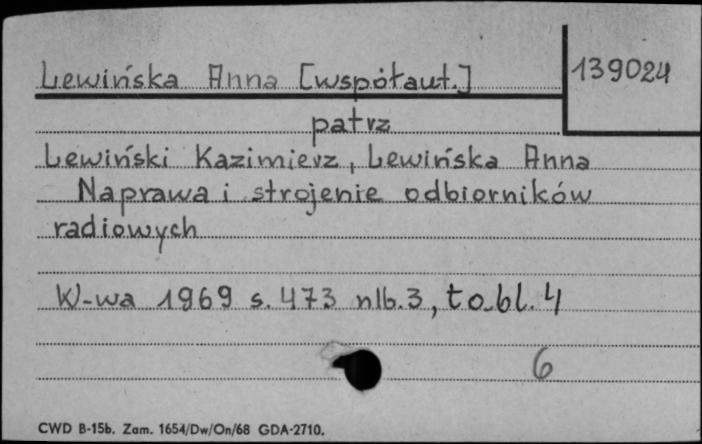 Lewińska Anna [współaut.]
139024
patrz
Lewiński Kazimierz, Lewińska Anna
Naprawa i strojenie odbiorników
radiowych
W-wa 1969 s. 473 nlb. 3, tabl. 4
6
CWD B-15b. Zam. 1654/Dw/On/68 GDA-2710.